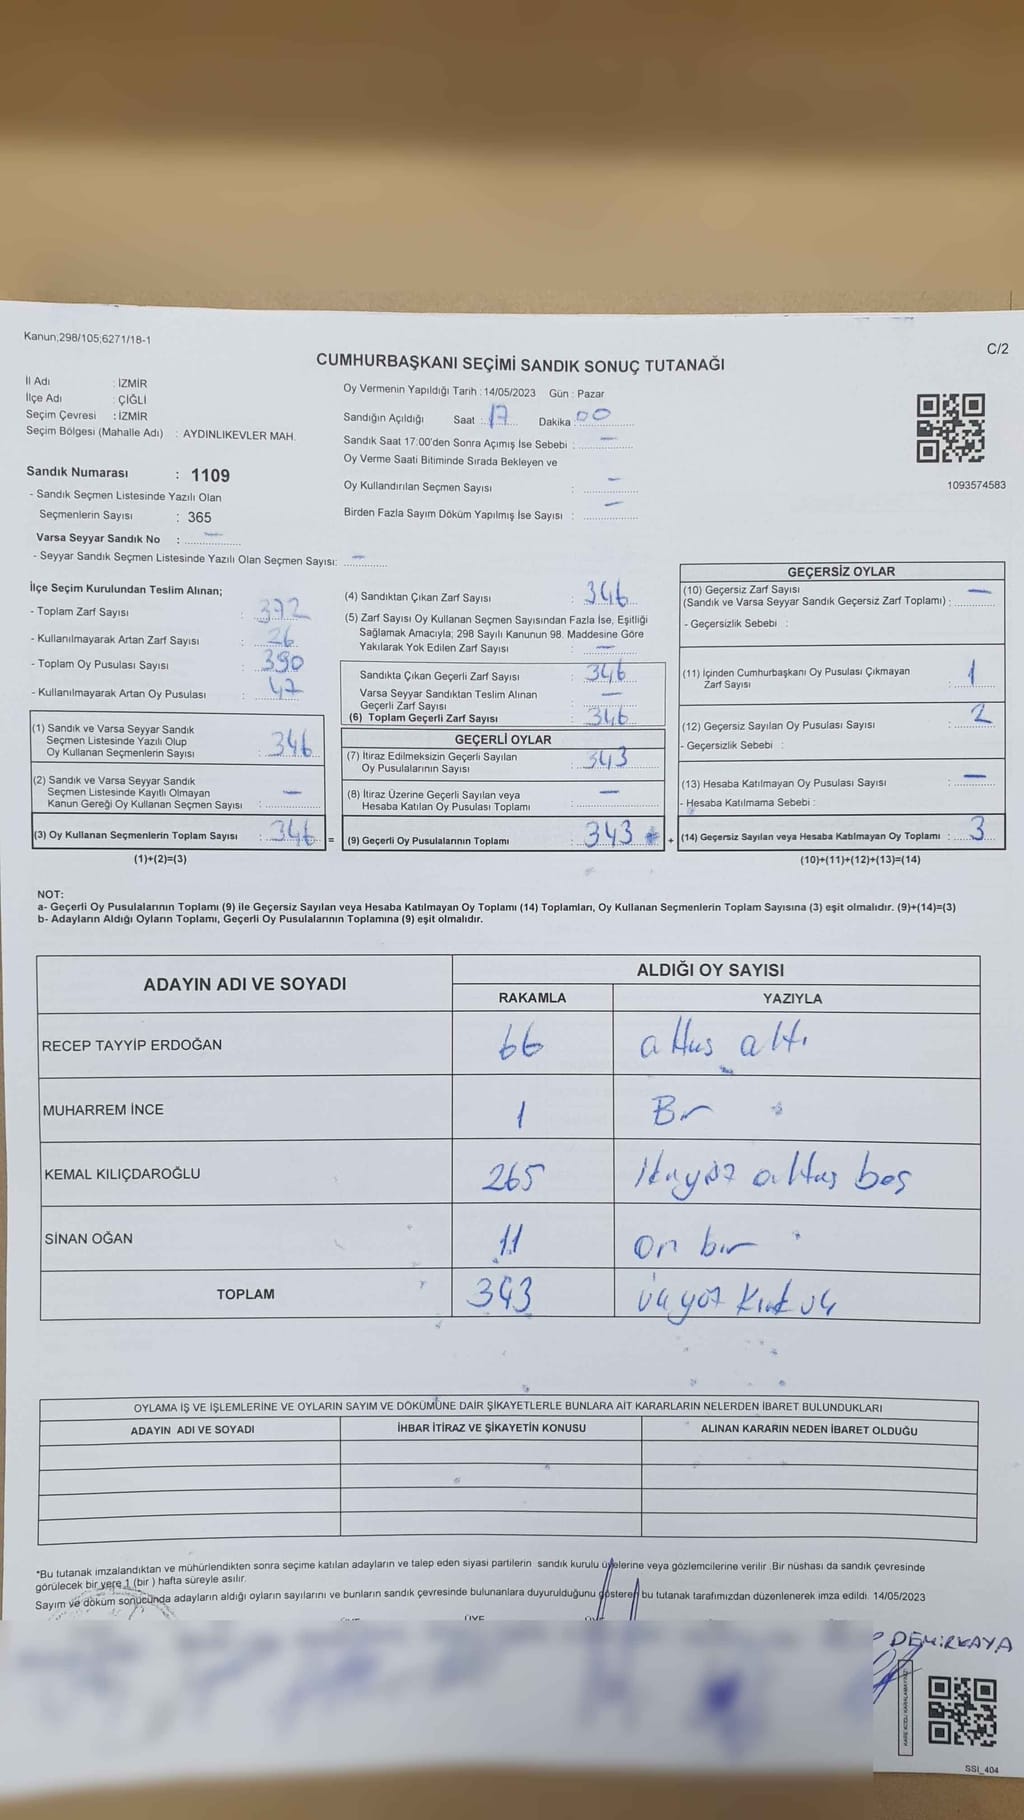 Kanun;298/105;6271/18-1
C/2
CUMHURBAŞKANI SEÇİMİ SANDIK SONUÇ TUTANAĞI
İl Adı : İZMİR
İlçe Adı : ÇİĞLİ
Seçim Çevresi : İZMİR
Seçim Bölgesi (Mahalle Adı) : AYDINLIKEVLER MAH.
Sandık Numarası : 1109
- Sandık Seçmen Listesinde Yazılı Olan
Seçmenlerin Sayısı : 365
Varsa Seyyar Sandık No : —
- Seyyar Sandık Seçmen Listesinde Yazılı Olan Seçmen Sayısı: —
Oy Vermenin Yapıldığı Tarih : 14/05/2023 Gün : Pazar
Sandığın Açıldığı Saat : 17 Dakika : 00
Sandık Saat 17:00'den Sonra Açımış İse Sebebi : —
Oy Verme Saati Bitiminde Sırada Bekleyen ve
Oy Kullandırılan Seçmen Sayısı : —
Birden Fazla Sayım Döküm Yapılmış İse Sayısı : —
1093574583
İlçe Seçim Kurulundan Teslim Alınan;
- Toplam Zarf Sayısı : 372
- Kullanılmayarak Artan Zarf Sayısı : 26
- Toplam Oy Pusulası Sayısı : 390
- Kullanılmayarak Artan Oy Pusulası : 47
(1) Sandık ve Varsa Seyyar Sandık
Seçmen Listesinde Yazılı Olup
Oy Kullanan Seçmenlerin Sayısı : 346
(2) Sandık ve Varsa Seyyar Sandık
Seçmen Listesinde Kayıtlı Olmayan
Kanun Gereği Oy Kullanan Seçmen Sayısı : —
(3) Oy Kullanan Seçmenlerin Toplam Sayısı : 346
(1)+(2)=(3)
(4) Sandıktan Çıkan Zarf Sayısı : 346
(5) Zarf Sayısı Oy Kullanan Seçmen Sayısından Fazla İse, Eşitliği
Sağlamak Amacıyla; 298 Sayılı Kanunun 98. Maddesine Göre
Yakılarak Yok Edilen Zarf Sayısı : —
Sandıkta Çıkan Geçerli Zarf Sayısı : 346
Varsa Seyyar Sandıktan Teslim Alınan
Geçerli Zarf Sayısı : —
(6) Toplam Geçerli Zarf Sayısı : 346
GEÇERLİ OYLAR
(7) İtiraz Edilmeksizin Geçerli Sayılan
Oy Pusulalarının Sayısı : 343
(8) İtiraz Üzerine Geçerli Sayılan veya
Hesaba Katılan Oy Pusulası Toplamı : —
= (9) Geçerli Oy Pusulalarının Toplamı : 343
GEÇERSİZ OYLAR
(10) Geçersiz Zarf Sayısı
(Sandık ve Varsa Seyyar Sandık Geçersiz Zarf Toplamı) : —
- Geçersizlik Sebebi :
(11) İçinden Cumhurbaşkanı Oy Pusulası Çıkmayan
Zarf Sayısı : 1
(12) Geçersiz Sayılan Oy Pusulası Sayısı : 2
- Geçersizlik Sebebi :
(13) Hesaba Katılmayan Oy Pusulası Sayısı : —
- Hesaba Katılmama Sebebi :
+ (14) Geçersiz Sayılan veya Hesaba Katılmayan Oy Toplamı : 3
(10)+(11)+(12)+(13)=(14)
NOT:
a- Geçerli Oy Pusulalarının Toplamı (9) ile Geçersiz Sayılan veya Hesaba Katılmayan Oy Toplamı (14) Toplamları, Oy Kullanan Seçmenlerin Toplam Sayısına (3) eşit olmalıdır. (9)+(14)=(3)
b- Adayların Aldığı Oyların Toplamı, Geçerli Oy Pusulalarının Toplamına (9) eşit olmalıdır.
ADAYIN ADI VE SOYADI
ALDIĞI OY SAYISI
RAKAMLA YAZIYLA
RECEP TAYYİP ERDOĞAN 66 altmış altı
MUHARREM İNCE 1 Bir
KEMAL KILIÇDAROĞLU 265 ikiyüz altmış beş
SİNAN OĞAN 11 on bir
TOPLAM 343 üçyüz kırk üç
OYLAMA İŞ VE İŞLEMLERİNE VE OYLARIN SAYIM VE DÖKÜMÜNE DAİR ŞİKAYETLERLE BUNLARA AİT KARARLARIN NELERDEN İBARET BULUNDUKLARI
ADAYIN ADI VE SOYADI İHBAR İTİRAZ VE ŞİKAYETİN KONUSU ALINAN KARARIN NEDEN İBARET OLDUĞU
*Bu tutanak imzalandıktan ve mühürlendikten sonra seçime katılan adayların ve talep eden siyasi partilerin sandık kurulu üyelerine veya gözlemcilerine verilir. Bir nüshası da sandık çevresinde
görülecek bir yere 1 (bir) hafta süreyle asılır.
Sayım ve döküm sonucunda adayların aldığı oyların sayılarını ve bunların sandık çevresinde bulunanlara duyurulduğunu gösteren bu tutanak tarafımızdan düzenlenerek imza edildi. 14/05/2023
ÜYE
DEMİRKAYA
SSİ_404